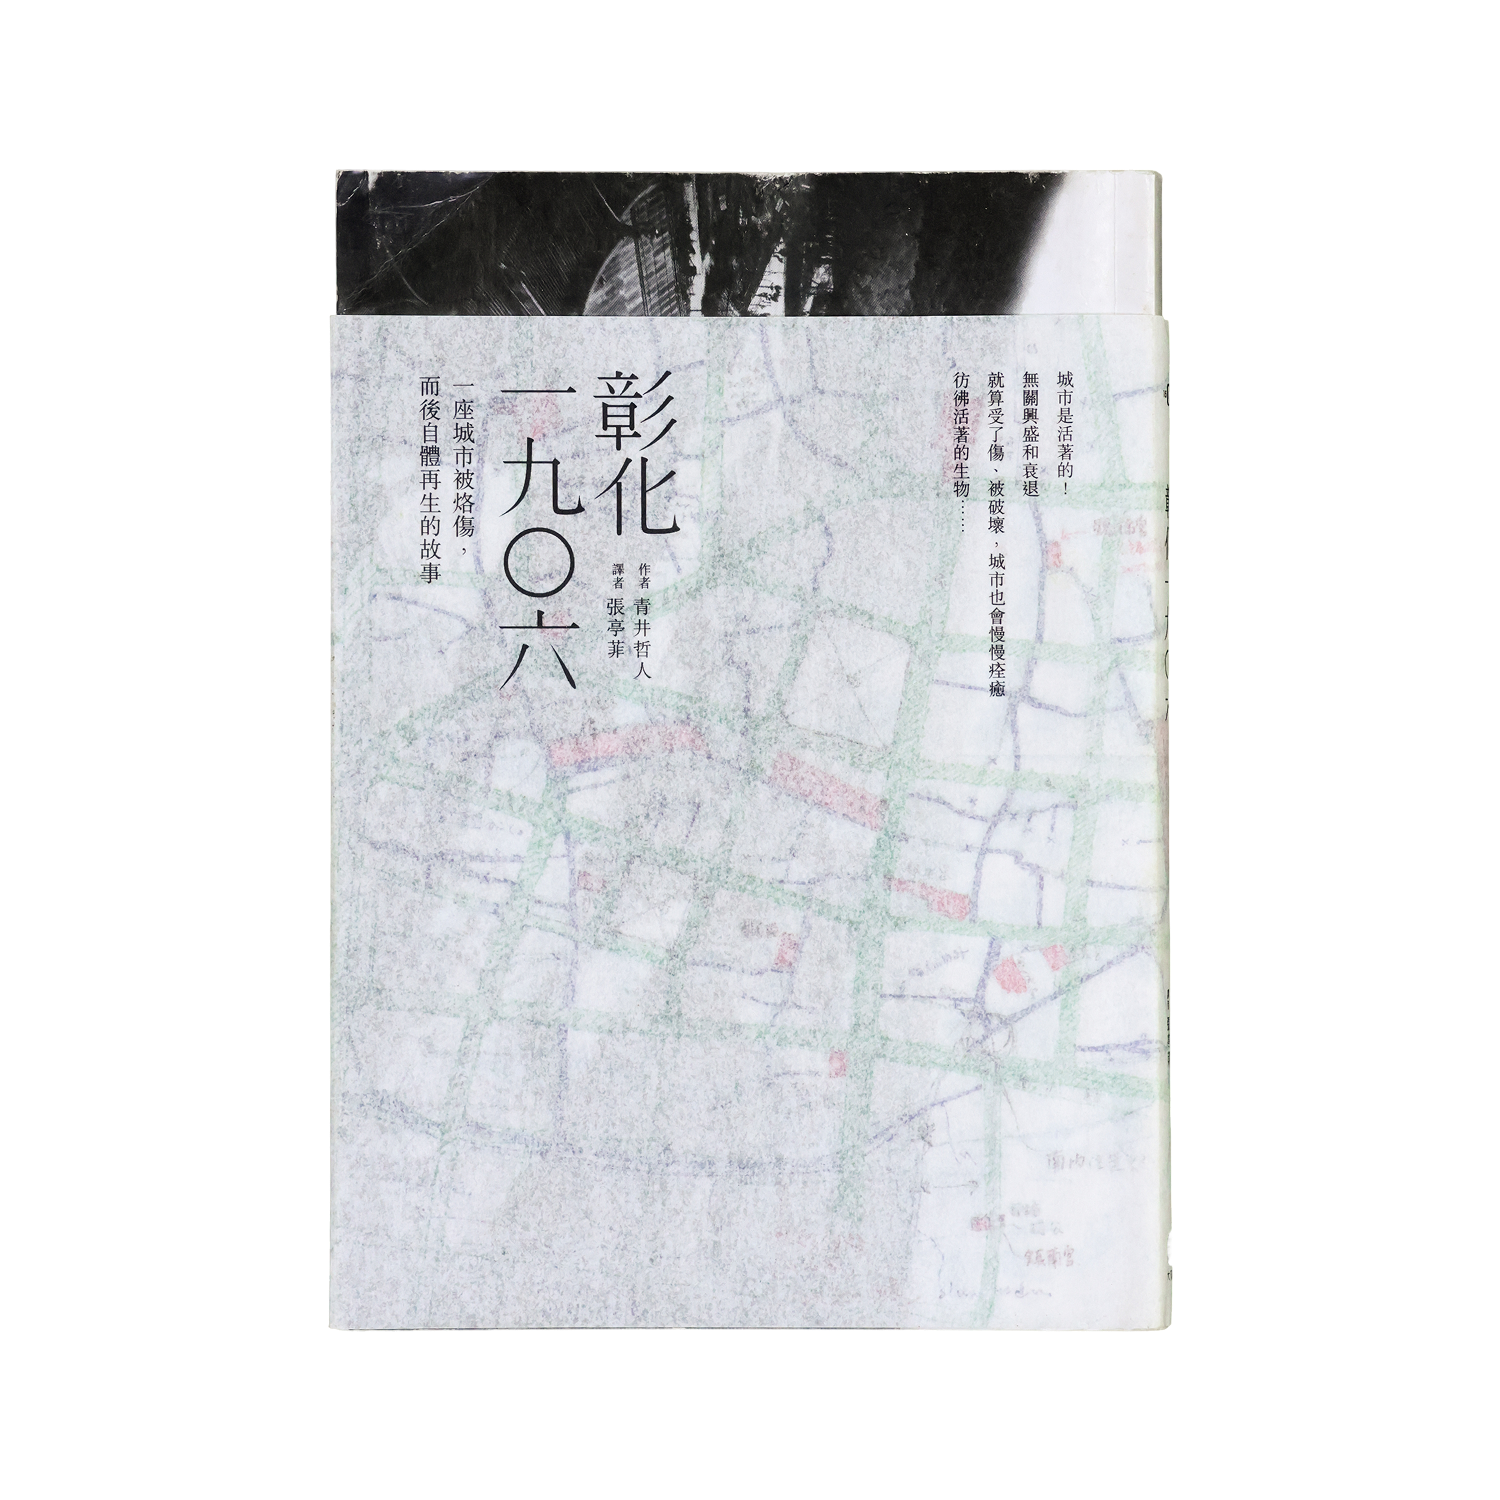 城市是活著的！
無關興盛和衰退
就算受了傷、被破壞，城市也會慢慢痊癒
彷彿活著的生物……
彰化
一九〇六
作者 青井哲人
譯者 張亭菲
一座城市被烙傷，
而後自體再生的故事
鎮南宮